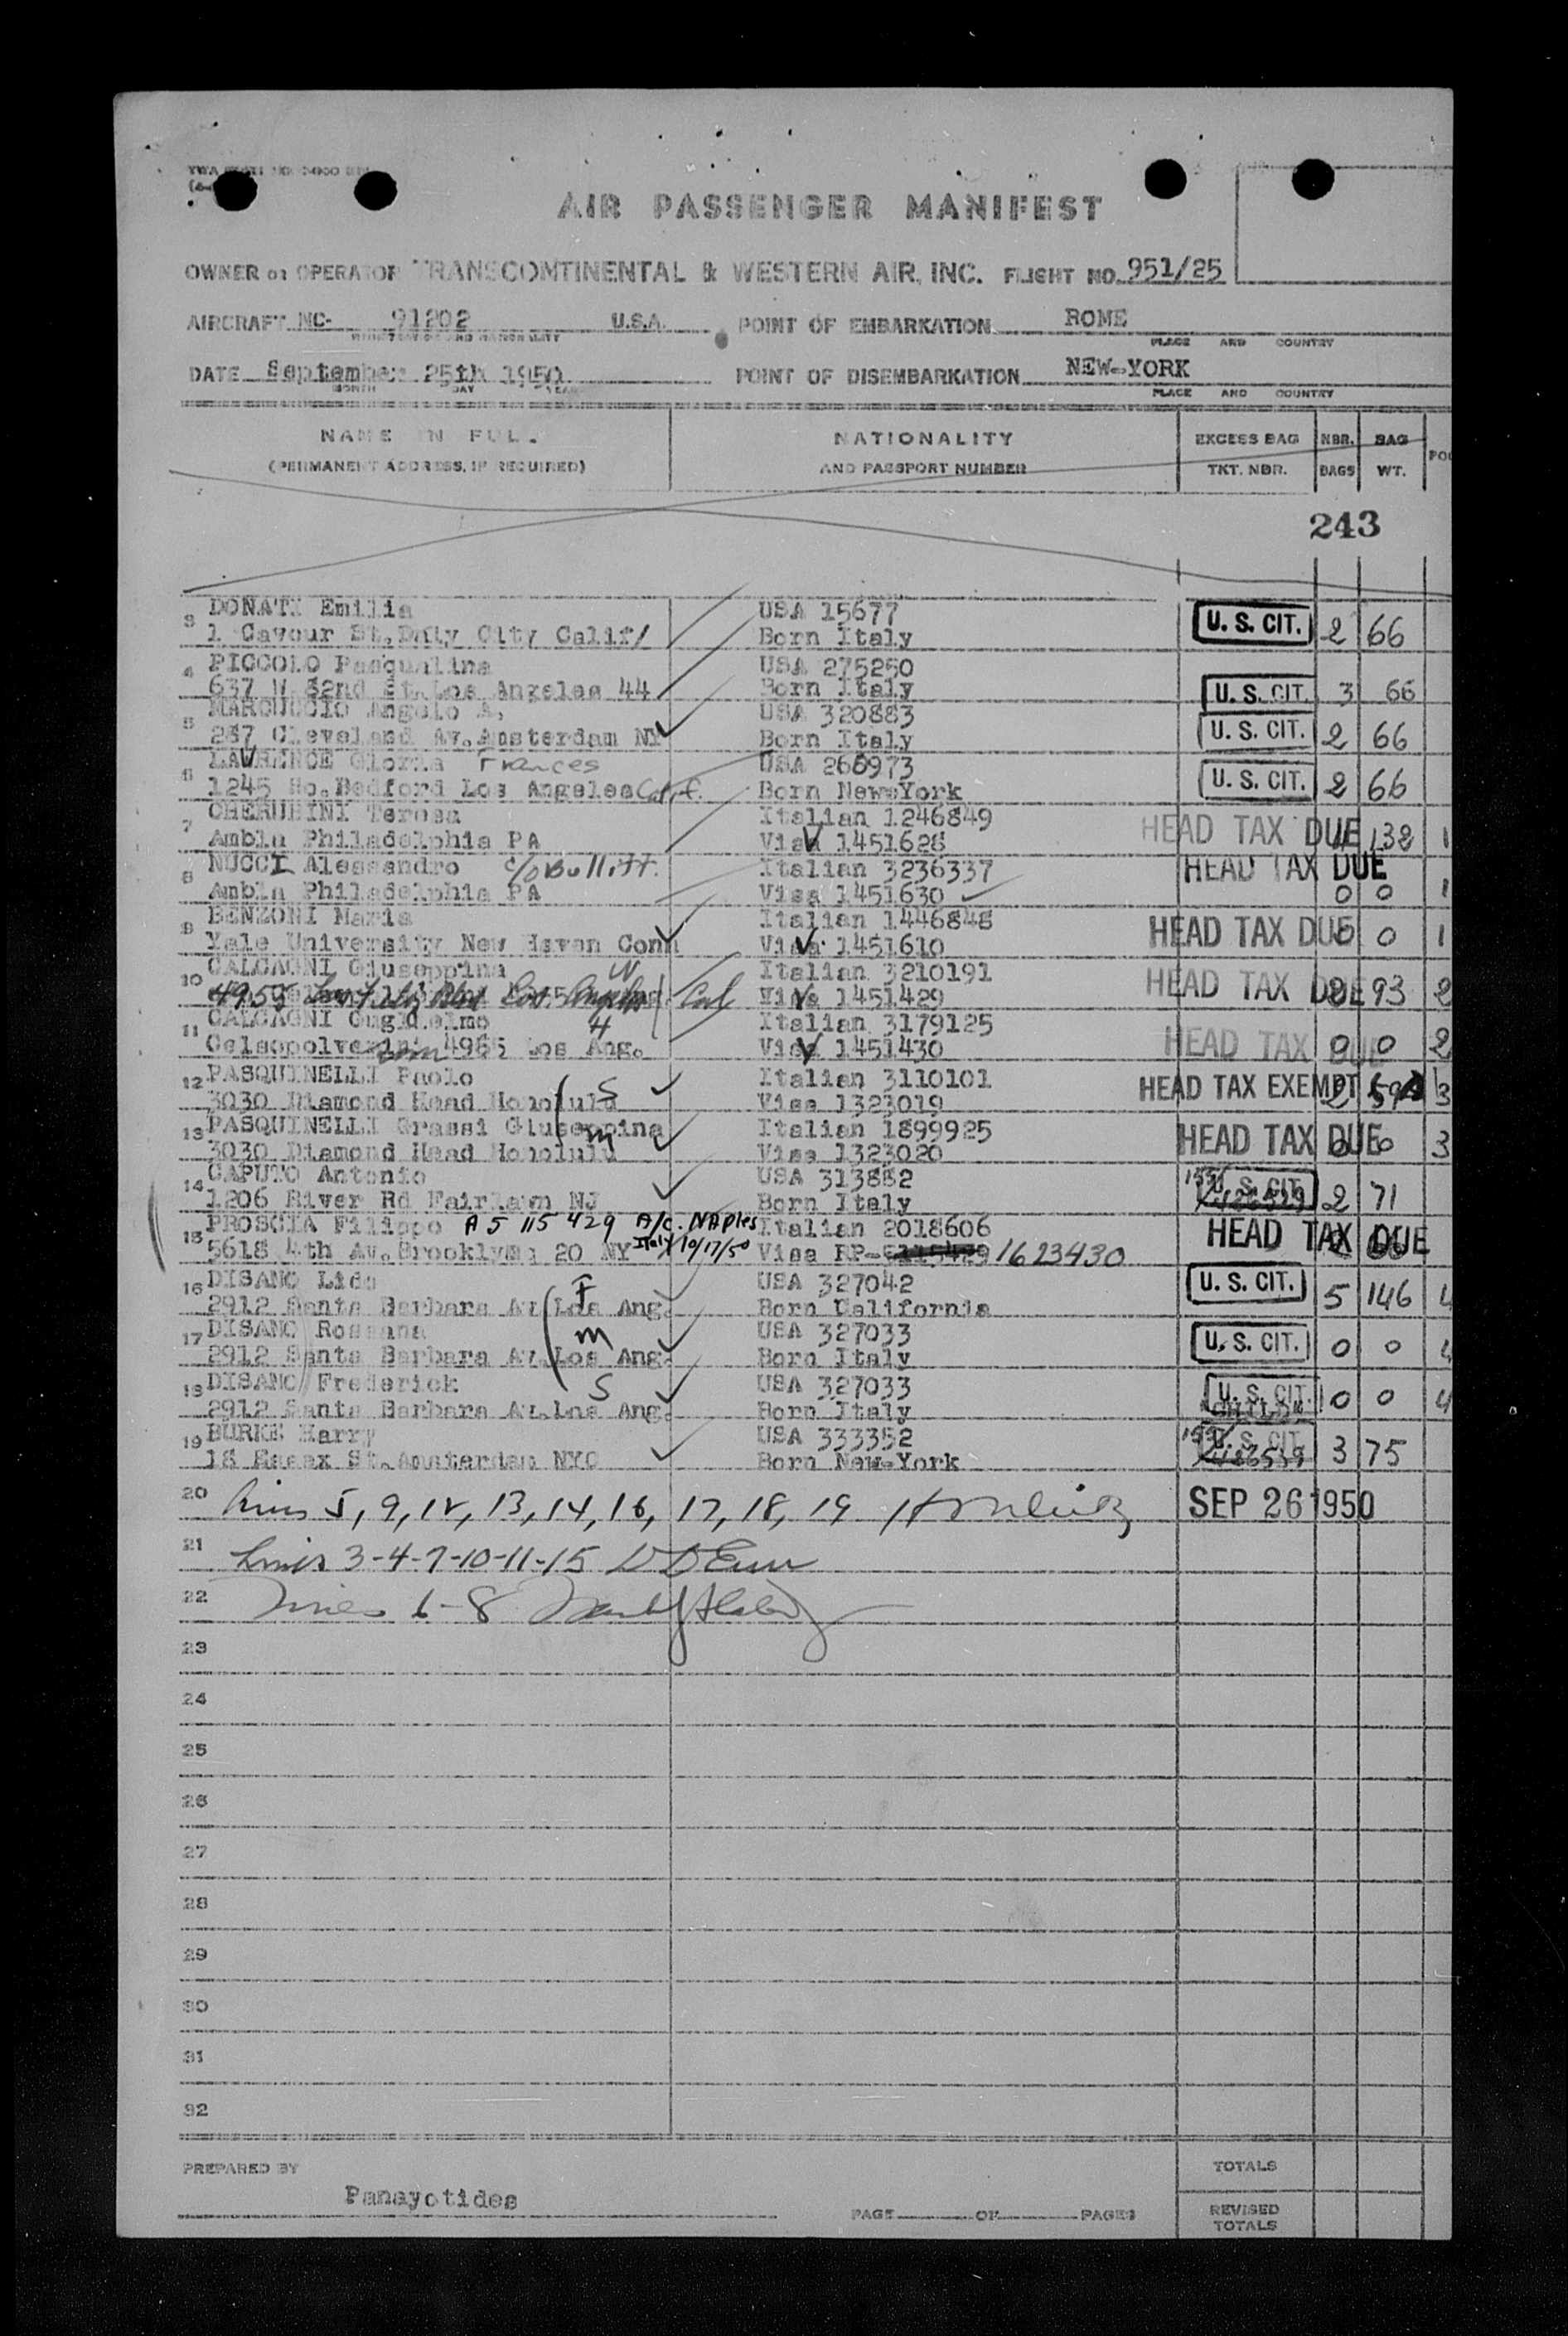 AIR PASSENGER MANIFEST
OWNER or OPERATOR TRANSCONTINENTAL & WESTERN AIR, INC. FLIGHT NO. 951/25
AIRCRAFT NC- 91202 U.S.A. POINT OF EMBARKATION ROME
PLACE AND COUNTRY
DATE September 25th 1950 POINT OF DISEMBARKATION NEW-YORK
MONTH DAY YEAR PLACE AND COUNTRY
NAME IN FULL NATIONALITY EXCESS BAG NBR. BAG
(PERMANENT ADDRESS, IF REQUIRED) AND PASSPORT NUMBER TKT. NBR. BAGS WT.
243
3 DONATI Emilia USA 15677 U. S. CIT. 2 66
1 Cavour St. Daly City Calif/ Born Italy
4 PICCOLO Pasqualina USA 275250
637 W 82nd St. Los Angeles 44 Born Italy U. S. CIT. 3 66
5 MARCUCCIO Angelo A. USA 320883
287 Cleveland Av. Amsterdam NY Born Italy U. S. CIT. 2 66
6 LAWRENCE Gloria Frances USA 260973
1245 So. Bedford Los Angeles Calif. Born New-York U. S. CIT. 2 66
7 CHERUBINI Teresa Italian 1246849 HEAD TAX DUE 132 1
Ambla Philadelphia PA Visa V 1451628
8 NUCCI Alessandro c/o Bullitt. Italian 3236337 HEAD TAX DUE
Ambla Philadelphia PA Visa 1451630 0 0 1
9 BENZONI Maria Italian 1446848 HEAD TAX DUE 0 1
Yale University New Haven Conn Visa 1451610
10 CALCAGNI Giuseppina W Italian 3210191 HEAD TAX DUE 93 2
4955 Los Angeles Cal Visa 1451429
11 CALCAGNI Guglielmo H Italian 3179125
4965 Los Ang. Visa 1451430 HEAD TAX DUE 0 2
12 PASQUINELLI Paolo S Italian 3110101 HEAD TAX EXEMPT 3
3030 Diamond Head Honolulu Visa 1323019
13 PASQUINELLI Grassi Giuseppina m Italian 1899925 HEAD TAX DUE 0 3
3030 Diamond Head Honolulu Visa 1323020
14 CAPUTO Antonio USA 313882 U. S. CIT. 2 71
1206 River Rd Fairlawn NJ Born Italy
15 PROSCIA Filippo A 5 115 429 A/c. NAples Italian 2018606 HEAD TAX DUE
5618 4th Av. Brooklyn 20 NY Italy 10/17/50 Visa RP- 1623430
16 DISANO Lido F USA 327042 U. S. CIT. 5 146 4
2912 Santa Barbara Av. Los Ang. Born California
17 DISANO Rossana m USA 327033 U. S. CIT. 0 0 4
2912 Santa Barbara Av. Los Ang. Born Italy
18 DISANO Frederick S USA 327033 U. S. CIT. 0 0 4
2912 Santa Barbara Av. Los Ang. Born Italy
19 BURKE Harry USA 333352 U. S. CIT. 3 75
18 Essex St. Amsterdam NYC Born New-York
20 5, 9, 12, 13, 14, 16, 17, 18, 19 SEP 26 1950
21 Lines 3-4-7-10-11-15
22 Lines 6-8
23
24
25
26
27
28
29
30
31
32
PREPARED BY TOTALS
Panayotides
PAGE OF PAGES REVISED
TOTALS